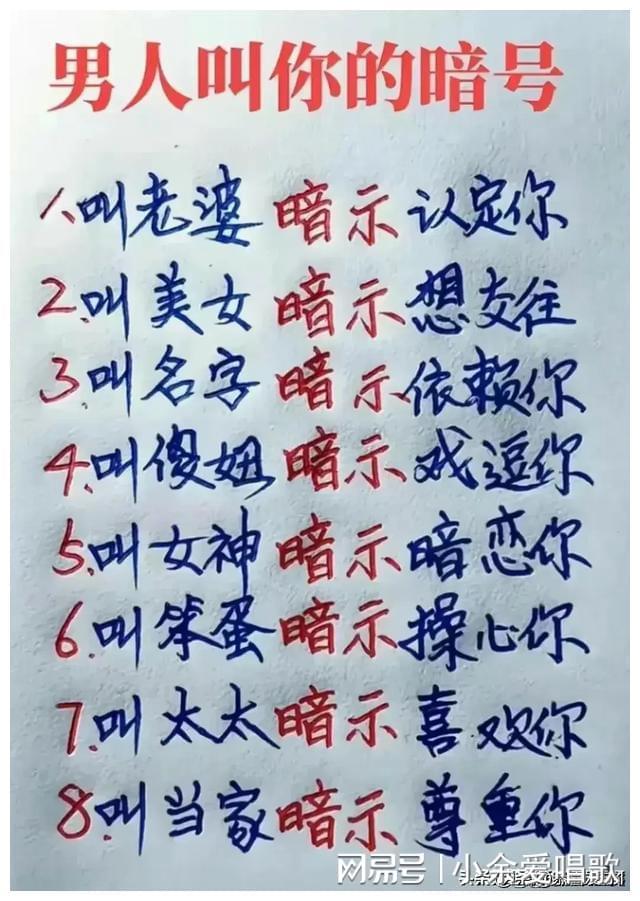 男人叫你的暗号
1.叫老婆 暗示 认定你
2.叫美女 暗示 想交往
3.叫名字 暗示 依赖你
4.叫傻妞 暗示 戏逗你
5.叫女神 暗示 暗恋你
6.叫笨蛋 暗示 操心你
7.叫太太 暗示 喜欢你
8.叫当家 暗示 尊重你
网易号 | 小余爱唱歌